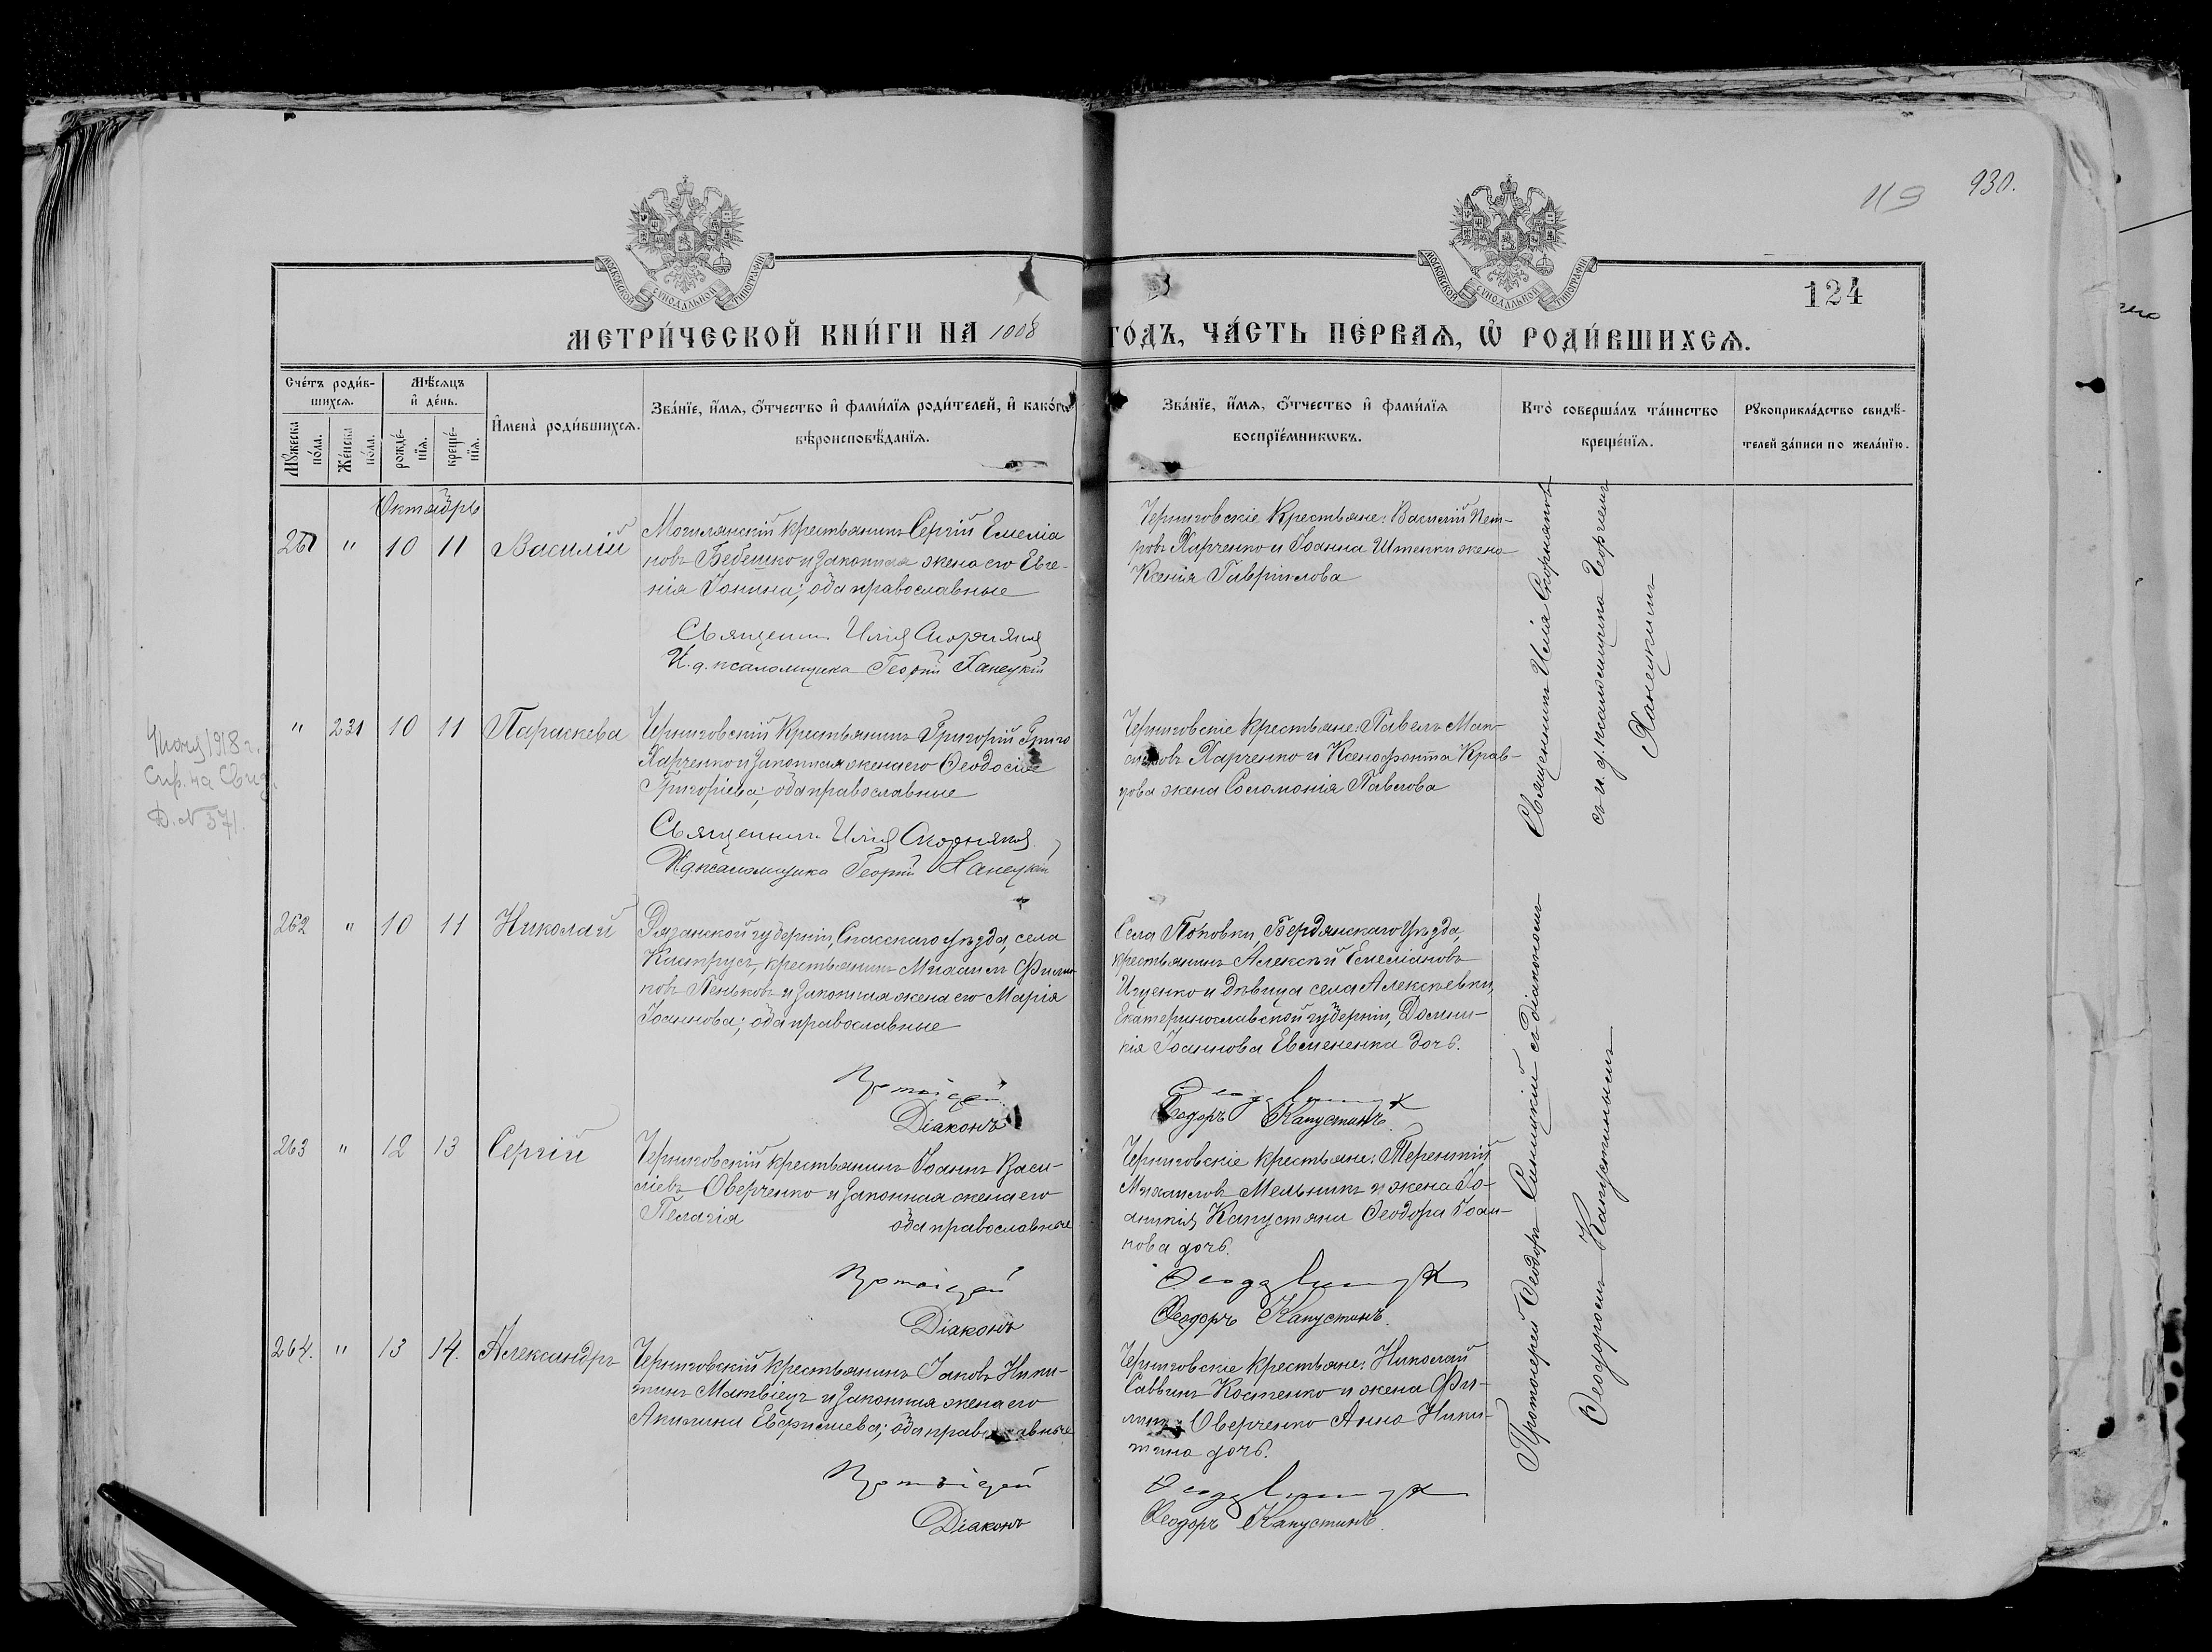 119
930.
МОСКОВСКОЙ СѴНОДАЛЬНОЙ ТИПОГРАФІИ
МОСКОВСКОЙ СѴНОДАЛЬНОЙ ТИПОГРАФІИ
124
МЕТРИ́ЧЕСКОЙ КНИ́ГИ НА 1908 ГО́ДЪ, ЧА́СТЬ ПЕ́РВАѦ, Ѡ҆ РОДИ́ВШИХСѦ.
Сче́тъ роди́в-
шихсѧ.
Мꙋ́жеска по́ла.
Же́нска по́ла.
Мѣ́сѧцъ
и҆ де́нь.
рожде́-
нїѧ.
креще́-
нїѧ.
И҆мена̀ роди́вшихсѧ.
Зва́нїе, и҆́мѧ, ѻ҆́тчество и҆ фами́лїѧ роди́телей, и҆ како́гѡ
вѣроисповѣ́данїѧ.
Зва́нїе, и҆́мѧ, ѻ҆́тчество и҆ фами́лїѧ
воспрїе́мникѡвъ.
Кто̀ соверша́лъ та́инство
креще́нїѧ.
Рꙋкоприкла́дство свидѣ́-
телей за́писи по жела́нїю.
Октябрь
261 " 10 11 Василій
Могилянскій крестьянинъ Сергій Емеліа
новъ Бебешко и законная жена его Евге-
нія Іонина; оба православные
Священникъ Илія Скорняковъ
И. д. псаломщика Георгій Ханецкій
Черниговскіе крестьяне: Василій Пет-
ровъ Харченко и Іоанна Штенки жена
Ксенія Гавріилова
Священникъ Илія Скорняковъ
съ и. д. псаломщика Георгіемъ
Ханецкимъ
" 231 10 11 Параскева
Черниговскій крестьянинъ Григорій Григо
Харченко и законная жена его Ѳеодосія
Григоріева; оба православные
Священникъ Илія Скорняковъ
И. д. псаломщика Георгій Ханецкій
Черниговскіе крестьяне: Павелъ Мак-
симовъ Харченко и Ксенофонта Крав-
цова жена Соломонія Павлова
1918 г.
Спр. на Свид.
Д. № 371.
262 " 10 11 Николай
Рязанской губерніи, Спасскаго уѣзда, села
Киструсъ, крестьянинъ Михаилъ Филип
повъ Пеньковъ и законная жена его Марія
Іоаннова; оба православные
Протоіерей
Діаконъ
Села Поповки, Бердянскаго уѣзда,
крестьянинъ Алексѣй Емеліановъ
Ищенко и дѣвица села Алексѣевки,
Екатеринославской губерніи, Домни-
кія Іоаннова Евмененка дочь.
Ѳеодоръ Капустинъ.
Протоіерей Ѳеодоръ Синицкій съ діакономъ
Ѳеодоромъ Капустинымъ
263 " 12 13 Сергій
Черниговскій крестьянинъ Іоаннъ Васи-
ліевъ Оверченко и законная жена его
Пелагія оба православные
Протоіерей
Діаконъ
Черниговскіе крестьяне: Терентій
Михаиловъ Мельникъ и жена Іо-
анникія Капустяна Ѳеодора Іоан-
нова дочь.
Ѳеодоръ Капустинъ.
264. " 13 14. Александръ
Черниговскій крестьянинъ Іаковъ Ники-
тинъ Матвіецъ и законная жена его
Акилина Евфиміева; оба православные
Протоіерей
Діаконъ
Черниговскіе крестьяне: Николай
Саввинъ Костенко и жена Фи-
липпа Оверченко Анна Ники-
тина дочь.
Ѳеодоръ Капустинъ.